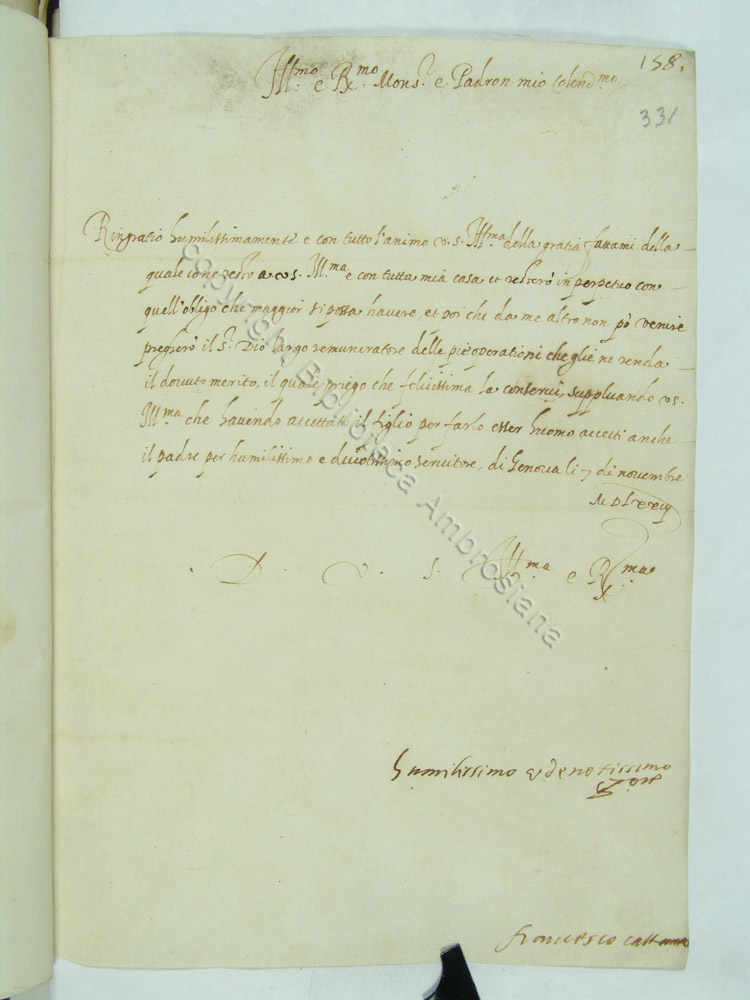 158.
Ill.mo e R.mo Mons.r e Padron mio Colend.mo
331
Ringratio humilissimamente e con tutto l'animo v.s. Ill.ma della gratia fattami della
quale io ne resto a v.s. Ill.ma e con tutta mia casa et restero in perpetuo con
quell'obligo che maggior si possa havere, et poi che da me altro non pò venire
preghero il S.r Dio largo remuneratore delle pie operationi che glie ne renda
il dovuto merito, il quale priego che felicissima la conservi, supplicando v.s.
Ill.ma che havendo accettato il figlio per farlo esser huomo accetti anche
il padre per humilissimo e divotissimo servitore, di Genova li 7 di novembre
D. V. S. Ill.ma e R.ma
humilissimo & devotissimo
S.tore
francesco cattaneo
copyright Biblioteca Ambrosiana